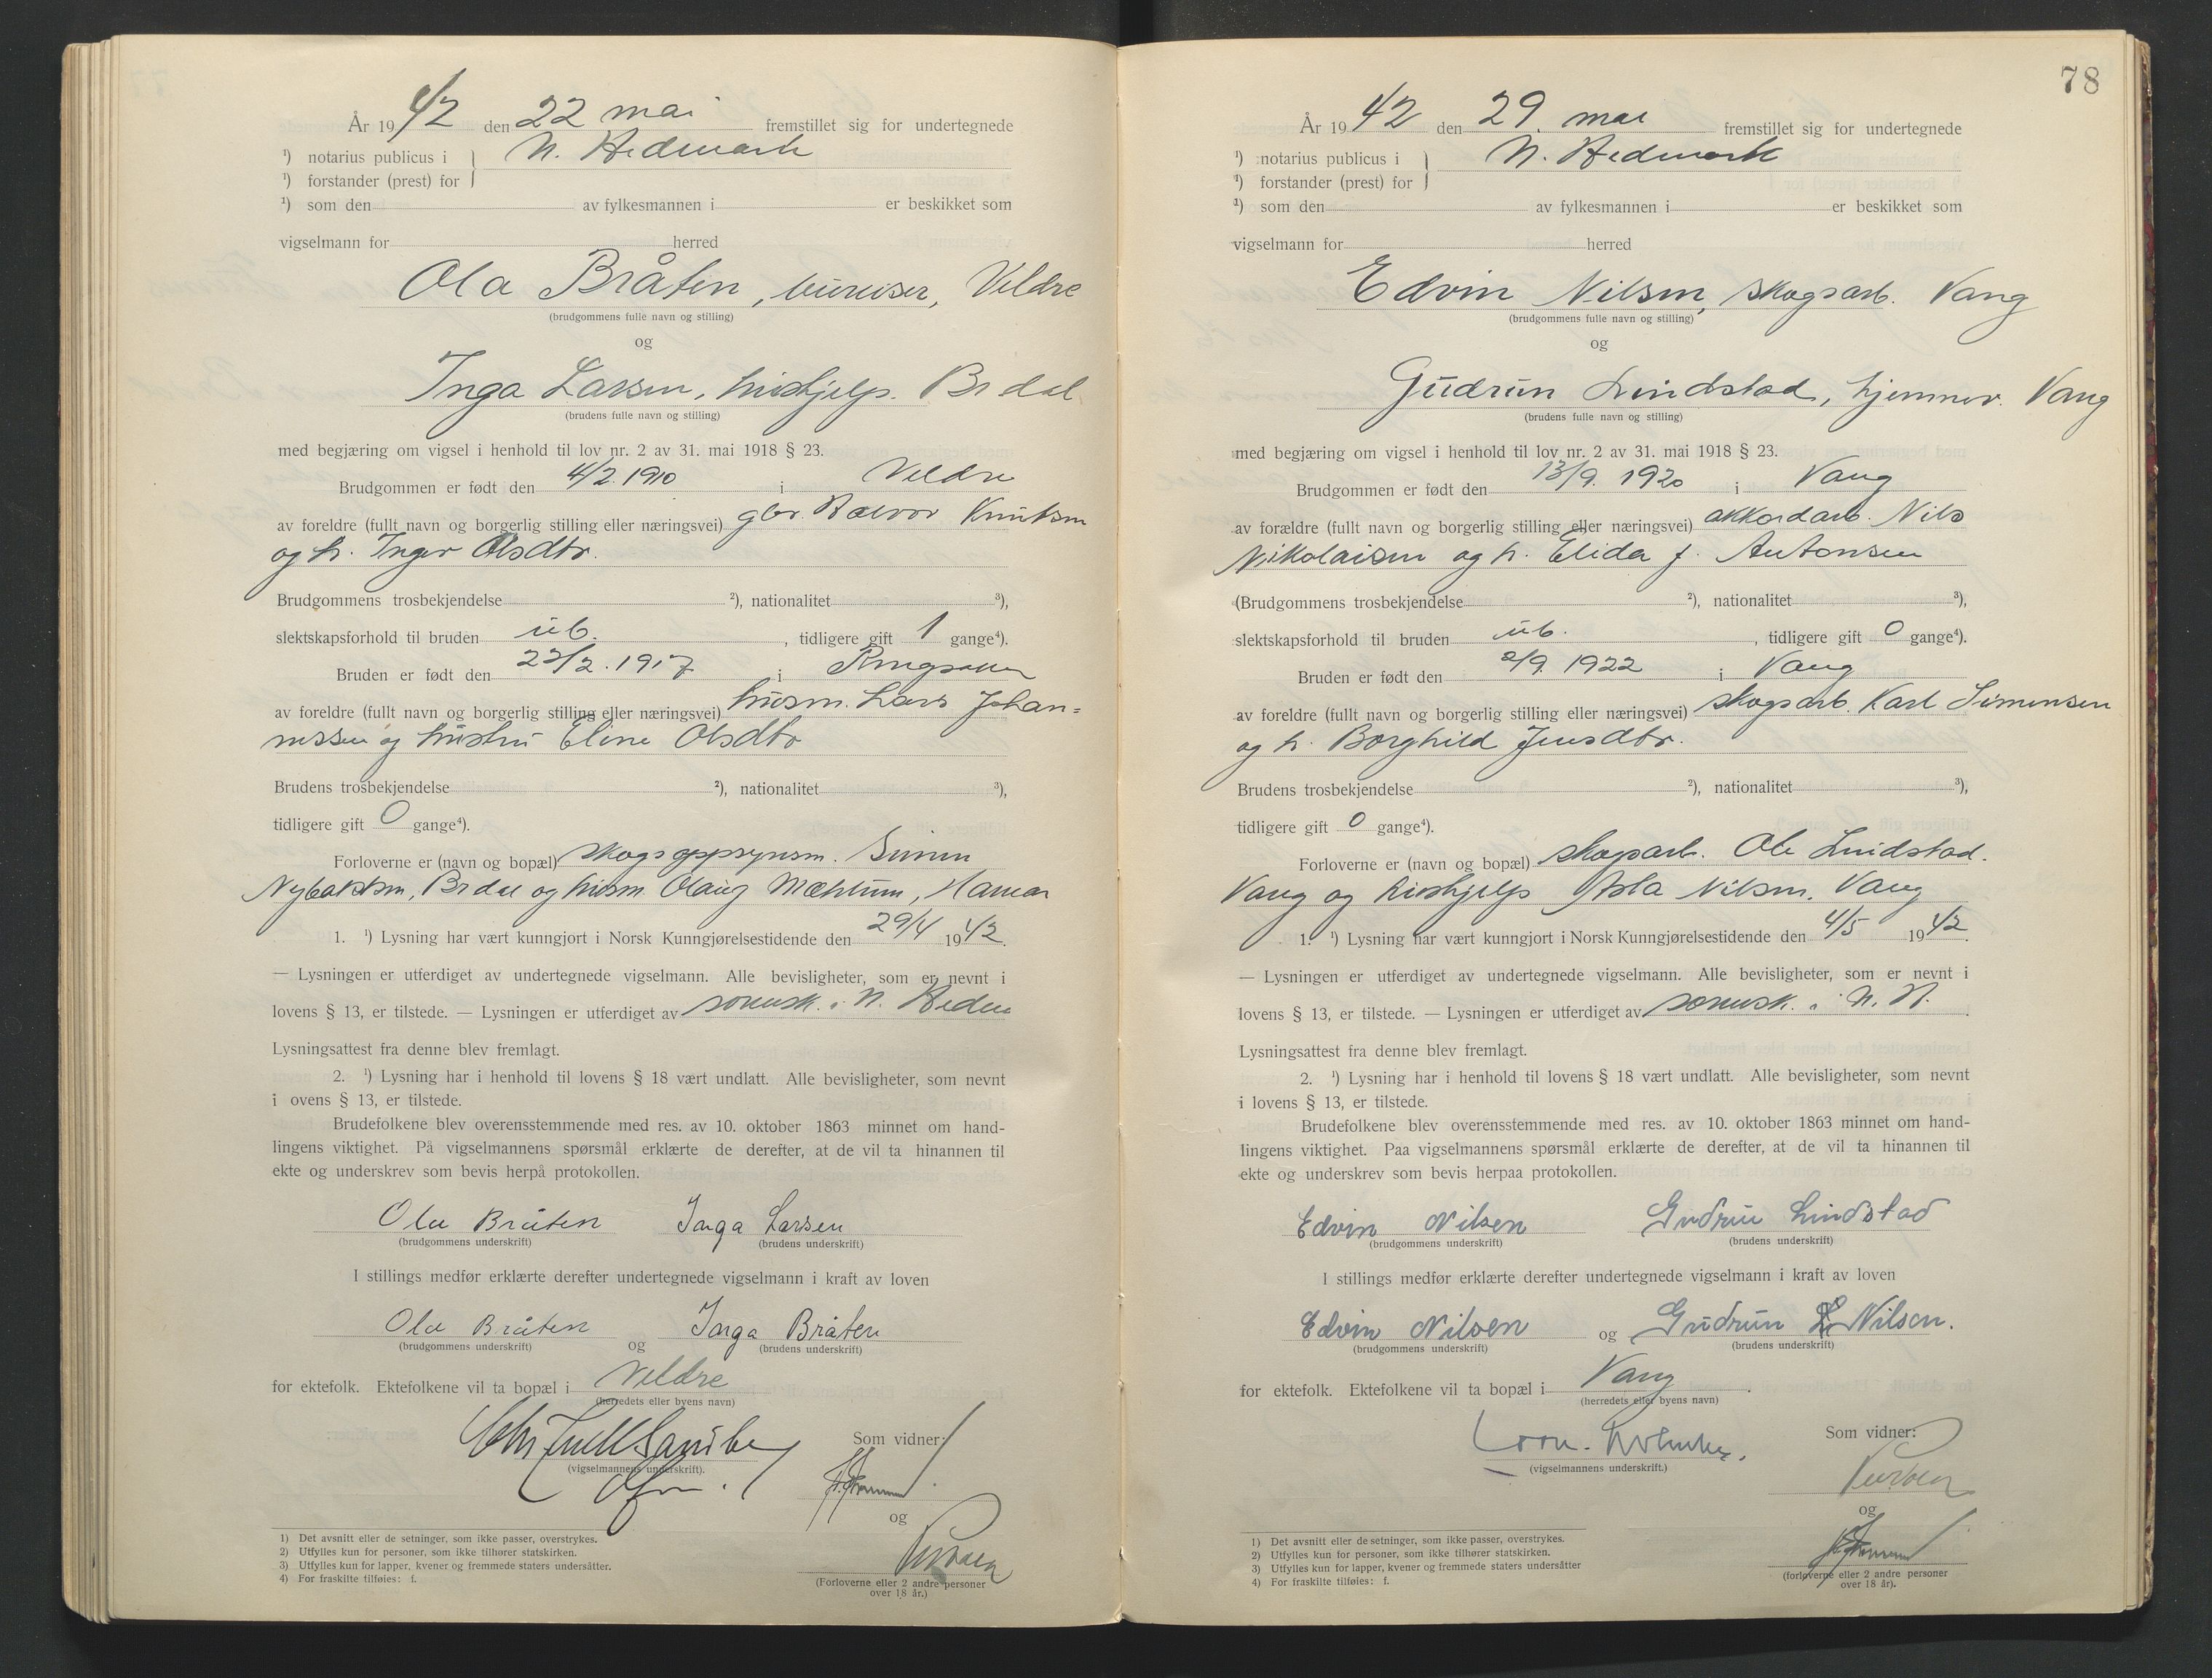 År 19 42 den 22 mai fremstillet sig for undertegnede
¹) notarius publicus i } N. Hedmark
¹) forstander (prest) for
¹) som den av fylkesmannen i er beskikket som
vigselmann for herred
Ola Bråten, bureiser, Veldre
(brudgommens fulle navn og stilling)
og
Inga Larsen, hushjelp. Brdal
(brudens fulle navn og stilling)
med begjæring om vigsel i henhold til lov nr. 2 av 31. mai 1918 § 23.
Brudgommen er født den 4/2. 1910 i Veldre
av foreldre (fullt navn og borgerlig stilling eller næringsvei) gbr. Halvor Knutsen
og h. Inger Olsdtr.
Brudgommens trosbekjendelse ²), nationalitet ³),
slektskapsforhold til bruden ub. , tidligere gift 1 gange⁴).
Bruden er født den 23/2. 1917 i Ringsaker
av foreldre (fullt navn og borgerlig stilling eller næringsvei) husm. Lars Johan=
nessen og hustru Eline Olsdtr
Brudens trosbekjendelse ²), nationalitet ³),
tidligere gift 0 gange⁴).
Forloverne er (navn og bopæl) skogsoppsynsm. Simen
Nybakken, Brdal og husm. Olaug Mæhlum, Hamar
1. ¹) Lysning har vært kunngjort i Norsk Kunngjørelsestidende den 29/4 19 42.
— Lysningen er utferdiget av undertegnede vigselmann. Alle bevisligheter, som er nevnt i
lovens § 13, er tilstede. — Lysningen er utferdiget av sorensk. i N. Hedm
Lysningsattest fra denne blev fremlagt.
2. ¹) Lysning har i henhold til lovens § 18 vært undlatt. Alle bevisligheter, som nevnt
i ovens § 13, er tilstede.
Brudefolkene blev overensstemmende med res. av 10. oktober 1863 minnet om hand-
lingens viktighet. På vigselmannens spørsmål erklærte de derefter, at de vil ta hinannen til
ekte og underskrev som bevis herpå protokollen.
Ola Bråten Inga Larsen
(brudgommens underskrift) (brudens underskrift)
I stillings medfør erklærte derefter undertegnede vigselmann i kraft av loven
Ola Bråten og Inga Bråten
(brudgommens underskrift) (brudens underskrift)
for ektefolk. Ektefolkene vil ta bopæl i Veldre
(herredets eller byens navn)
Som vidner:
(vigselmannens underskrift).
og
(Forloverne eller 2 andre personer
over 18 år.)
1) Det avsnitt eller de setninger, som ikke passer, overstrykes.
2) Utfylles kun for personer, som ikke tilhører statskirken.
3) Utfylles kun for lapper, kvener og fremmede staters undersåtter.
4) For fraskilte tilføies: f.
78
År 19 42 den 29. mai fremstillet sig for undertegnede
¹) notarius publicus i } N. Hedmark
¹) forstander (prest) for
¹) som den av fylkesmannen i er beskikket som
vigselmann for herred
Edvin Nilsen, skogsarb. Vang
(brudgommens fulle navn og stilling)
og
Gudrun Lindstad, hjemmev. Vang
(brudens fulle navn og stilling)
med begjæring om vigsel i henhold til lov nr. 2 av 31. mai 1918 § 23.
Brudgommen er født den 13/9. 1920 i Vang
av forældre (fullt navn og borgerlig stilling eller næringsvei) akkordarb. Nils
Nikolaisen og h. Elida f. Antonsen
(Brudgommens trosbekjendelse ²), nationalitet ³),
slektskapsforhold til bruden ub. , tidligere gift 0 gange⁴).
Bruden er født den 2/9. 1922 i Vang
av foreldre (fullt navn og borgerlig stilling eller næringsvei) skogsarb. Karl Simensen
og h. Borghild Jensdtr.
Brudens trosbekjendelse ²), nationalitet ³),
tidligere gift 0 gange⁴).
Forloverne er (navn og bopæl) skogsarb. Ole Lindstad.
Vang og hushjelp Asla Nilsen, Vang
1. ¹) Lysning har vært kunngjort i Norsk Kunngjørelsestidende den 4/5 19 42.
— Lysningen er utferdiget av undertegnede vigselmann. Alle bevisligheter, som er nevnt i
lovens § 13, er tilstede. — Lysningen er utferdiget av sorensk. i N. H.
Lysningsattest fra denne blev fremlagt.
2. ¹) Lysning har i henhold til lovens § 18 vært undlatt. Alle bevisligheter, som nevnt
i lovens § 13, er tilstede.
Brudefolkene blev overensstemmende med res. av 10. oktober 1863 minnet om hand-
lingens viktighet. Paa vigselmannens spørsmål erklærte de derefter, at de vil ta hinannen til
ekte og underskrev som bevis herpaa protokollen.
Edvin Nilsen Gudrun Lindstad
(brudgommens underskrift) (brudens underskrift)
I stillings medfør erklærte derefter undertegnede vigselmann i kraft av loven
Edvin Nilsen og Gudrun L Nilsen.
(brudgommens underskrift) (brudens underskrift)
for ektefolk. Ektefolkene vil ta bopæl i Vang
(herredets eller byens navn)
Som vidner:
(vigselmannens underskrift.)
og
(forloverne eller 2 andre personer
over 18 år).
1) Det avsnitt eller de setninger, som ikke passer, overstrykes.
2) Utfylles kun for personer, som ikke tilhører statskirken.
3) Utfylles kun for lapper, kvener og fremmede staters undersåtter
4) For fraskilte tilføies: f.